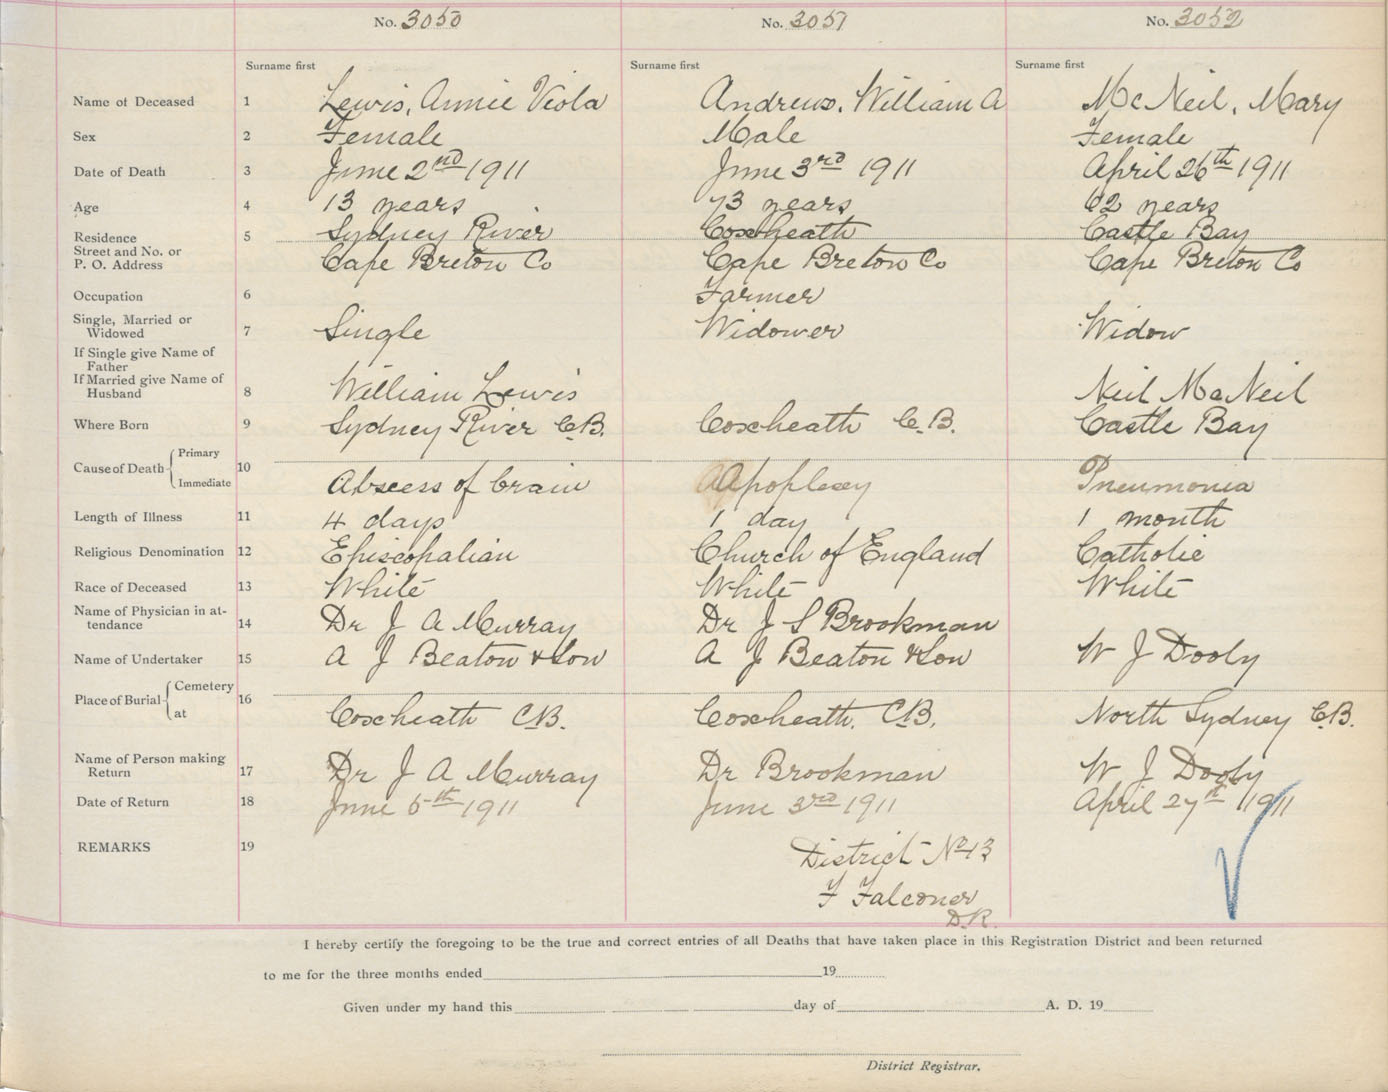 No. 3050 No. 3051 No. 3052
Surname first Surname first Surname first
Name of Deceased 1 Lewis, Annie Viola Andrews, William A McNeil, Mary
Sex 2 Female Male Female
Date of Death 3 June 2nd 1911 June 3rd 1911 April 26th 1911
Age 4 13 years 73 years 62 years
Residence 5 Sydney River Coxheath Castle Bay
Street and No. or
P. O. Address Cape Breton Co Cape Breton Co Cape Breton Co
Occupation 6 Farmer
Single, Married or
Widowed 7 Single Widower Widow
If Single give Name of
Father
If Married give Name of
Husband 8 William Lewis Neil McNeil
Where Born 9 Sydney River C.B. Coxheath C.B. Castle Bay
Cause of Death Primary
Immediate 10 Abscess of brain Apoplexy Pneumonia
Length of Illness 11 4 days 1 day 1 month
Religious Denomination 12 Episcopalian Church of England Catholic
Race of Deceased 13 White White White
Name of Physician in at-
tendance 14 Dr J A Murray Dr J S Brookman
Name of Undertaker 15 A J Beaton & Son A J Beaton & Son W J Dooly
Place of Burial Cemetery
at 16 Coxheath CB. Coxheath. CB. North Sydney C.B.
Name of Person making
Return 17 Dr J A Murray Dr Brookman W J Dooly
Date of Return 18 June 5th 1911 June 3rd 1911 April 27th 1911
REMARKS 19 District No 13
F Falconer
D.R.
I hereby certify the foregoing to be the true and correct entries of all Deaths that have taken place in this Registration District and been returned
to me for the three months ended 19
Given under my hand this day of A. D. 19
District Registrar.